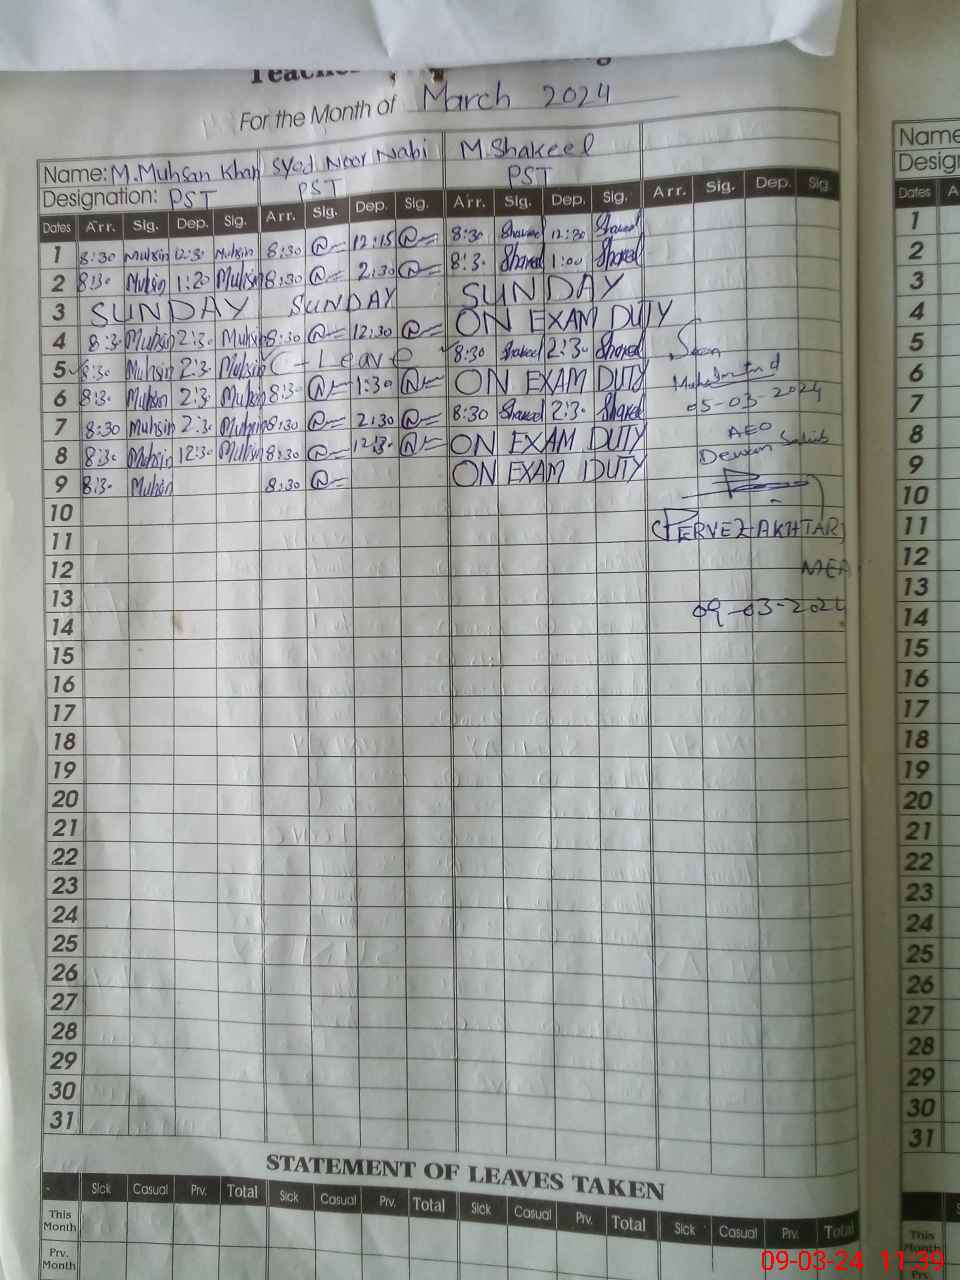 For the Month of March 2024
Name: M. Muhsan Khan Syed Noor Nabi M. Shakeel
Designation: PST PST PST
Dates Arr. Sig. Dep. Sig. Arr. Sig. Dep. Sig. Arr. Sig. Dep. Sig. Arr. Sig. Dep. Sig.
1 8:30 Muhsin 12:3. Muhsin 8:30 12:15 8:30 Shakeel 12:30 Shakeel
2 8:3. Muhsin 1:20 Muhsin 8:30 2:30 8:3. Shakeel 1:00 Shakeel
3 SUNDAY SUNDAY SUNDAY
4 8:3. Muhsin 2:3. Muhsin 8:30 12:30 ON EXAM DUTY
5 8:30 Muhsin 2:3. Muhsin C-Leave 8:30 Shakeel 2:3. Shakeel Seen
6 8:3. Muhsin 2:3. Muhsin 8:3. 1:30 ON EXAM DUTY
7 8:30 Muhsin 2:3. Muhsin 8:30 2:30 8:30 Shakeel 2:3. Shakeel 05-03-2024
8 8:3. Muhsin 12:3. Muhsin 8:30 12:3. ON EXAM DUTY AEO
9 8:3. Muhsin 8:30 ON EXAM DUTY
10
11 (PERVEZ AKHTAR)
12 MEA
13
14 09-03-2024
15
16
17
18
19
20
21
22
23
24
25
26
27
28
29
30
31
STATEMENT OF LEAVES TAKEN
Sick Casual Prv. Total Sick Casual Prv. Total Sick Casual Prv. Total Sick Casual Prv. Total
This Month
Prv. Month
Name
Dates
1
2
3
4
5
6
7
8
9
10
11
12
13
14
15
16
17
18
19
20
21
22
23
24
25
26
27
28
29
30
31
This
Month
09-03-24 11:39